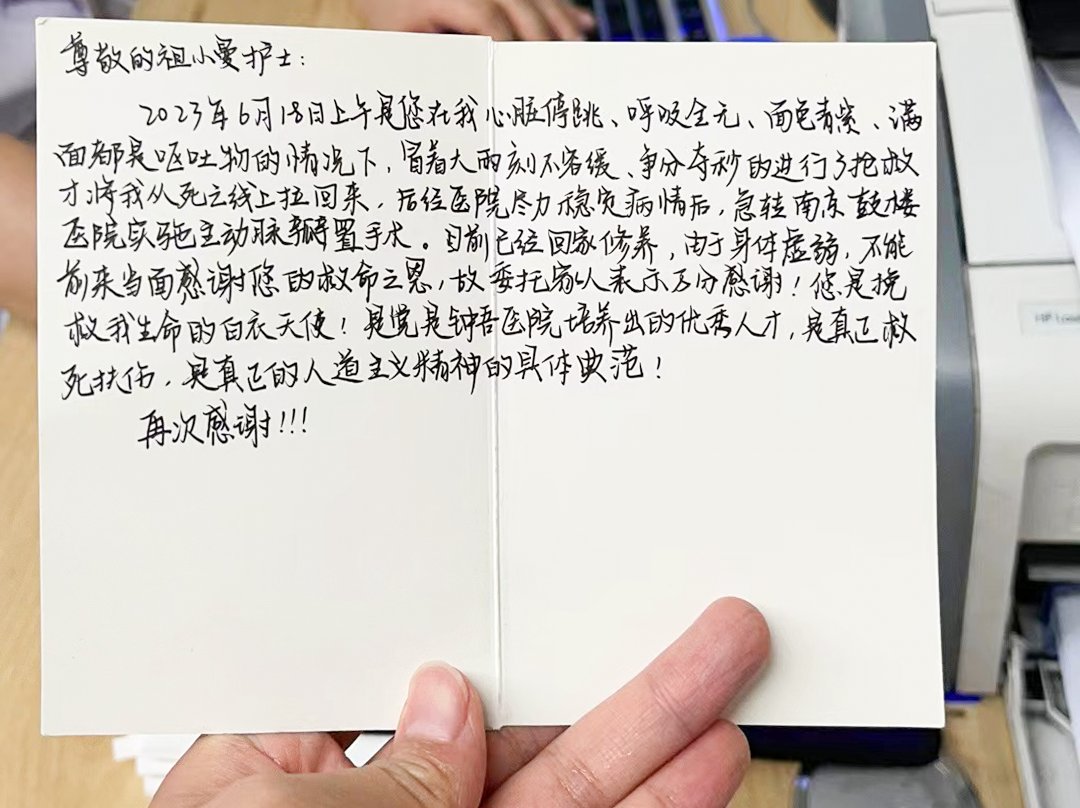 尊敬的祖小曼护士：
2023年6月18日上午是您在我心脏停跳、呼吸全无、面色青紫、满
面都是呕吐物的情况下，冒着大雨刻不容缓、争分夺秒的进行了抢救
才将我从死亡线上拉回来，后经医院尽力稳定病情后，急转南京鼓楼
医院实施主动脉瓣置手术。目前已经回家修养，由于身体虚弱，不能
前来当面感谢您的救命之恩，故委托家人表示万分感谢！您是挽
救我生命的白衣天使！是党是钟吾医院培养出的优秀人才，是真正救
死扶伤，是真正的人道主义精神的具体典范！
再次感谢!!!